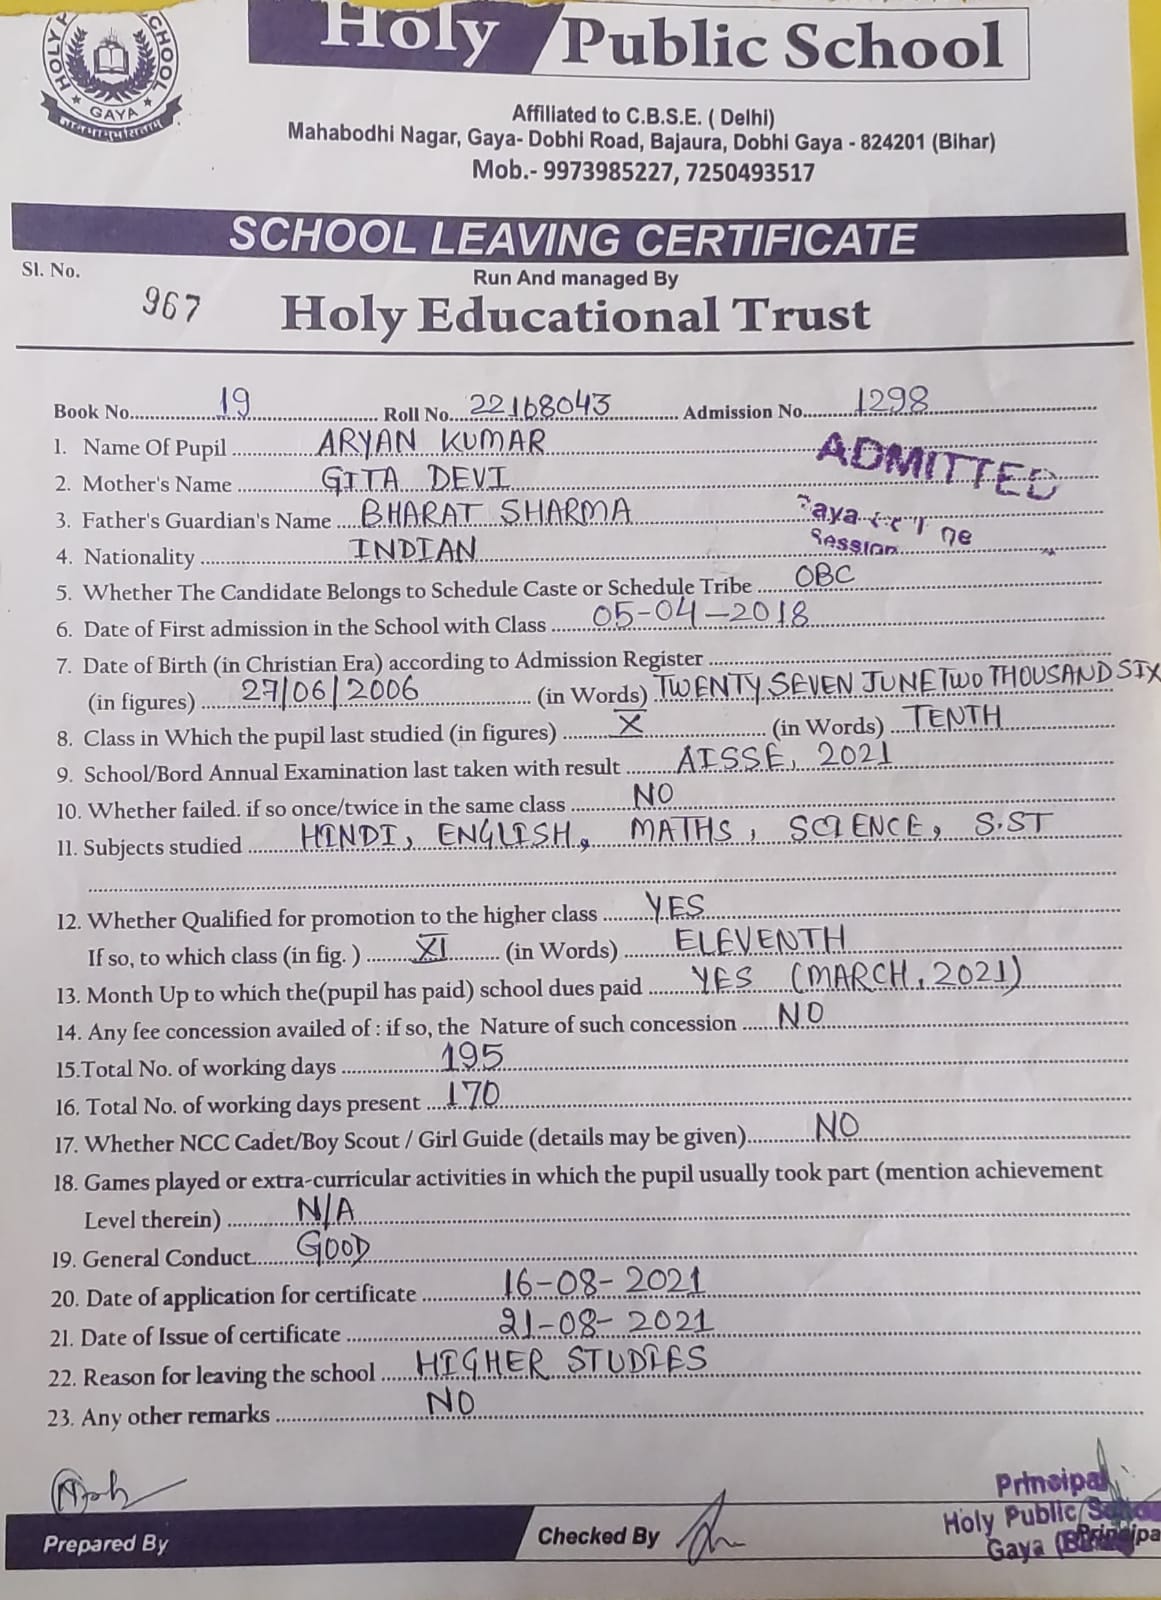 HOLY P SCHOOL
★ GAYA ★
Holy Public School
Affiliated to C.B.S.E. ( Delhi)
Mahabodhi Nagar, Gaya- Dobhi Road, Bajaura, Dobhi Gaya - 824201 (Bihar)
Mob.- 9973985227, 7250493517
SCHOOL LEAVING CERTIFICATE
Sl. No. 967
Run And managed By
Holy Educational Trust
Book No. 19 Roll No. 22168043 Admission No. 1298
1. Name Of Pupil ARYAN KUMAR
ADMITTED
2. Mother's Name GITA DEVI
3. Father's Guardian's Name BHARAT SHARMA
4. Nationality INDIAN
Session
5. Whether The Candidate Belongs to Schedule Caste or Schedule Tribe OBC
6. Date of First admission in the School with Class 05-04-2018
7. Date of Birth (in Christian Era) according to Admission Register
(in figures) 27/06/2006 (in Words) TWENTY SEVEN JUNE TWO THOUSAND SIX
8. Class in Which the pupil last studied (in figures) X (in Words) TENTH
9. School/Bord Annual Examination last taken with result AISSE, 2021
10. Whether failed. if so once/twice in the same class NO
11. Subjects studied HINDI, ENGLISH, MATHS, SCIENCE, S.ST
12. Whether Qualified for promotion to the higher class YES
If so, to which class (in fig. ) XI (in Words) ELEVENTH
13. Month Up to which the(pupil has paid) school dues paid YES (MARCH, 2021)
14. Any fee concession availed of : if so, the Nature of such concession NO
15.Total No. of working days 195
16. Total No. of working days present 170
17. Whether NCC Cadet/Boy Scout / Girl Guide (details may be given) NO
18. Games played or extra-curricular activities in which the pupil usually took part (mention achievement
Level therein) N/A
19. General Conduct GOOD
20. Date of application for certificate 16-08-2021
21. Date of Issue of certificate 21-08-2021
22. Reason for leaving the school HIGHER STUDIES
23. Any other remarks NO
Principal
Holy Public
Gaya
Prepared By Checked By Principa